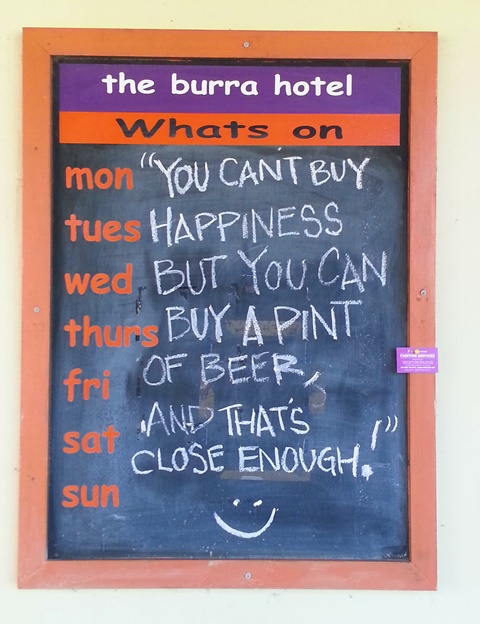 the burra hotel
Whats on
mon "YOU CAN'T BUY
tues HAPPINESS
wed BUT YOU CAN
thurs BUY A PINT
fri OF BEER,
sat AND THAT'S
CLOSE ENOUGH!"
sun